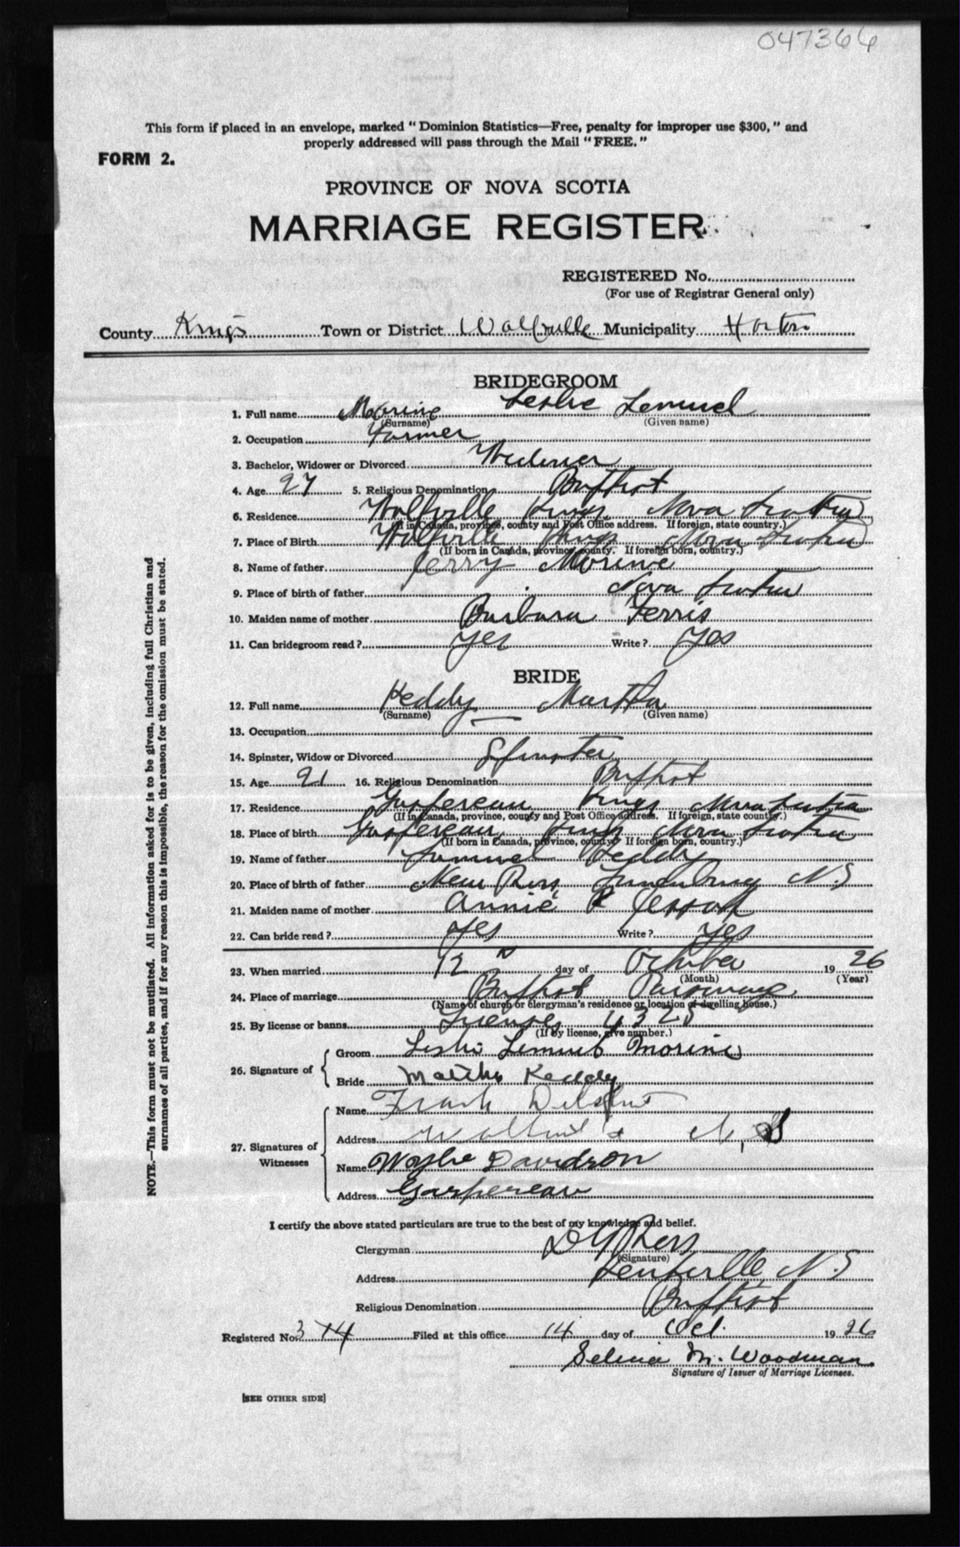 047366
This form if placed in an envelope, marked "Dominion Statistics—Free, penalty for improper use $300," and
properly addressed will pass through the Mail "FREE."
FORM 2.
PROVINCE OF NOVA SCOTIA
MARRIAGE REGISTER
REGISTERED No.
(For use of Registrar General only)
County Kings Town or District Wolfville Municipality Horton
BRIDEGROOM
1. Full name Morine Leslie Lemuel
(Surname) (Given name)
2. Occupation Farmer
3. Bachelor, Widower or Divorced Widower
4. Age 27 5. Religious Denomination Baptist
6. Residence Wolfville Kings Nova Scotia
(If in Canada, province, county and Post Office address. If foreign, state country.)
7. Place of Birth Wolfville Kings Nova Scotia
(If born in Canada, province, county. If foreign born, country.)
8. Name of father Jerry Morine
9. Place of birth of father Nova Scotia
10. Maiden name of mother Barbara Ferris
11. Can bridegroom read? yes Write? yes
BRIDE
12. Full name Keddy Martha
(Surname) (Given name)
13. Occupation —
14. Spinster, Widow or Divorced Spinster
15. Age 21 16. Religious Denomination Baptist
17. Residence Gaspereau Kings Nova Scotia
(If in Canada, province, county and Post Office address. If foreign, state country.)
18. Place of birth Gaspereau Kings Nova Scotia
(If born in Canada, province, county? If foreign born, country.)
19. Name of father Keddy
20. Place of birth of father New Ross Lunenburg N.S
21. Maiden name of mother Annie
22. Can bride read? yes Write? yes
23. When married 12 day of October 1926
(Month) (Year)
24. Place of marriage Baptist Parsonage
(Name of church or clergyman's residence or location of dwelling house.)
25. By license or banns License 4325
(If by license, give number.)
26. Signature of
Groom Leslie Lemuel Morine
Bride Martha Keddy
27. Signatures of Witnesses
Name Frank
Address Wolfville N.S
Name Davidson
Address Gaspereau
I certify the above stated particulars are true to the best of my knowledge and belief.
Clergyman Ross
(Signature)
Address Kentville N.S
Religious Denomination Baptist
Registered No. 374 Filed at this office 14 day of Oct. 1926
Selina M. Woodman
Signature of Issuer of Marriage Licenses.
[SEE OTHER SIDE]
NOTE.—This form must not be mutilated. All information asked for is to be given, including full Christian and
surnames of all parties, and if for any reason this is impossible, the reason for the omission must be stated.